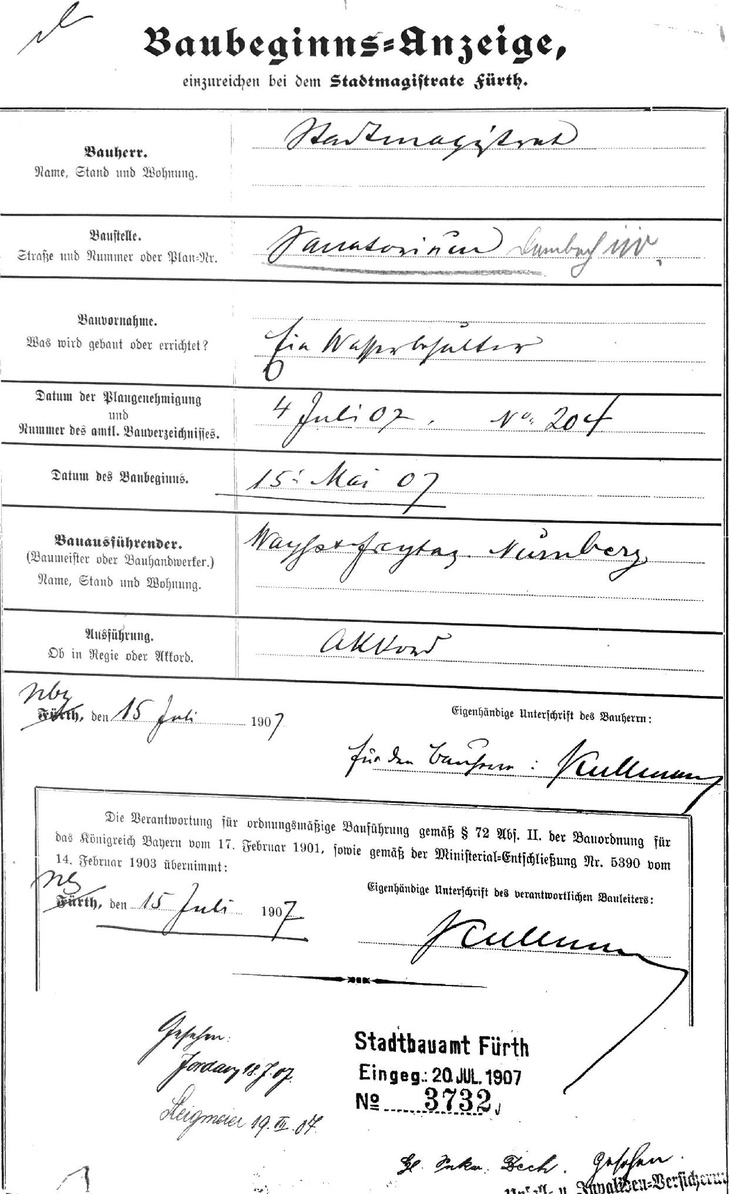 Baubeginns=Anzeige,
einzureichen bei dem Stadtmagistrate Fürth.
Bauherr.
Name, Stand und Wohnung.
Stadtmagistrat
Baustelle.
Straße und Nummer oder Plan=Nr.
Sanatorium Dambach
Bauvornahme.
Was wird gebaut oder errichtet?
Ein Wasserbehälter
Datum der Plangenehmigung
und
Nummer des amtl. Bauverzeichnisses.
4 Juli 07. No. 204
Datum des Baubeginns.
15. Mai 07
Bauausführender.
(Baumeister oder Bauhandwerker.)
Name, Stand und Wohnung.
Wayss & Freytag Nürnberg
Ausführung.
Ob in Regie oder Akkord.
Akkord
Nbg
Fürth, den 15 Juli 1907
Eigenhändige Unterschrift des Bauherrn:
für den Bauherrn: Kullmann
Die Verantwortung für ordnungsmäßige Bauführung gemäß § 72 Abs. II. der Bauordnung für
das Königreich Bayern vom 17. Februar 1901, sowie gemäß der Ministerial=Entschließung Nr. 5390 vom
14. Februar 1903 übernimmt:
Nbg
Fürth, den 15 Juli 1907
Eigenhändige Unterschrift des verantwortlichen Bauleiters:
Kullmann
Gesehen:
Jordan 18.7.07.
19. VII. 07.
Stadtbauamt Fürth
Eingeg.: 20. JUL. 1907
No 3732
Gesehen.
Unfall- u. Invaliden-Versicherung